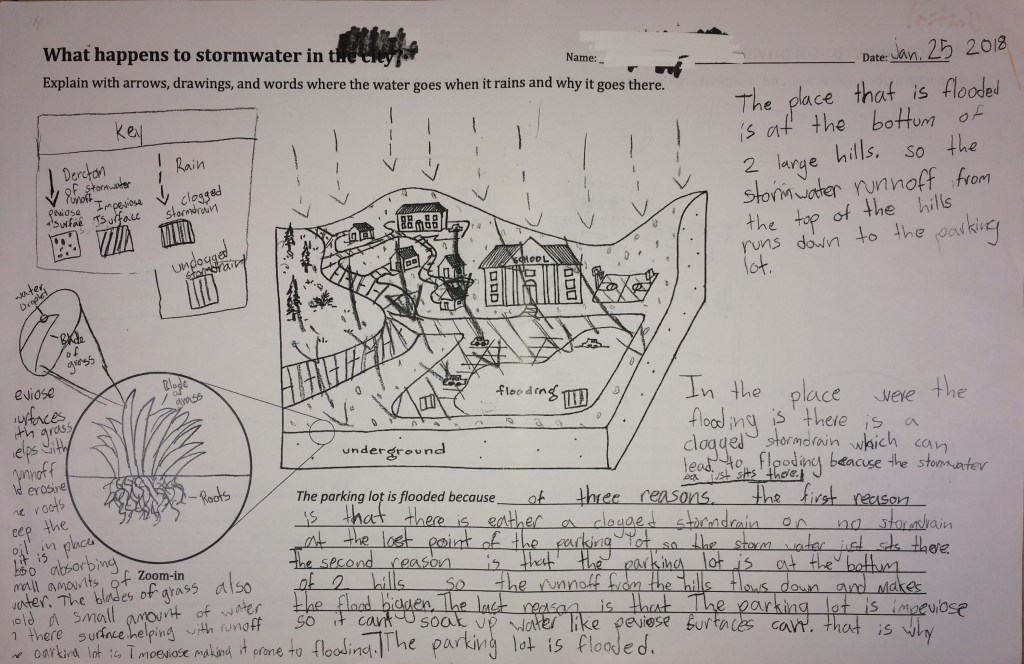 What happens to stormwater in the city?
Name:
Date: Jan. 25 2018
Explain with arrows, drawings, and words where the water goes when it rains and why it goes there.
The place that is flooded
is at the bottum of
2 large hills. so the
stormwater runnoff from
the top of the hills
runs down to the parking
lot.
Key
Derction
of stormwater
runoff
Rain
peviose
surface
Impeviose
surface
clogged
stormdrain
unclogged
stormdrain
water
Droplet
Blade
of
grass
SCHOOL
flooding
underground
Blade
of
grass
Roots
Zoom-in
In the place were the
flooding is there is a
clogged stormdrain which can
lead to flooding beacuse the stormwater
just sits there.
The parking lot is flooded because of three reasons. the first reason
is that there is eather a clogged stormdrain or no stormdrain
at the lost point of the parking lot so the storm water just sits there.
the second reason is that the parking lot is at the bottum
of 2 hills so the runnoff from the hills flows down and makes
the flood bigger. The last reason is that The parking lot is impeviose
so it cant soak up water like peviose surfaces can. that is why
The parking lot is flooded.
eviose
urfaces
ith grass
elps with
unnoff
erosine
roots
eep the
oil in place
it is
also absorbing
mall amounts of
water. The blades of grass also
old a small amount of water
there surface. helping with runoff
parking lot is Impeviose making it prone to flooding.